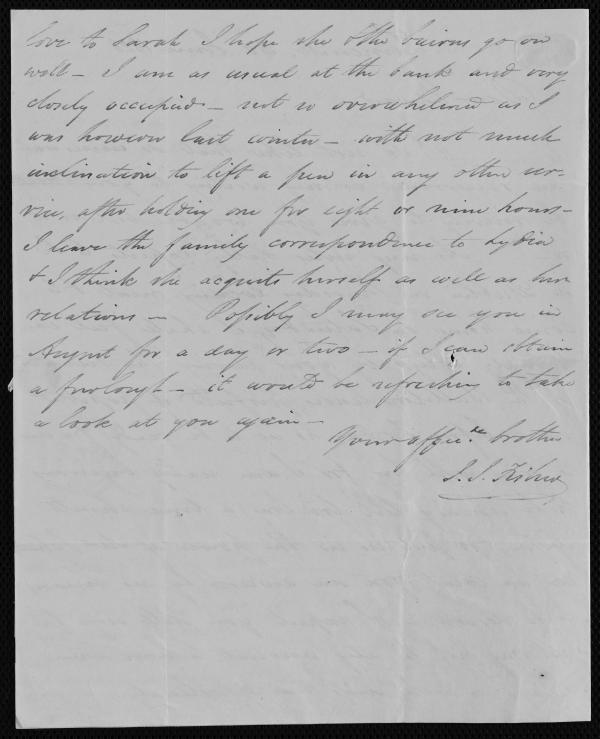 love to Sarah I hope she & the            go on
well – I am as usual at the bank and very
closely occupied – not so overwhelmed as I
was however last winter – with not much
inclination to lift a pen in any other ser-
vice, after holding one for eight or nine hours –
I leave the family correspondence to Lydia
& I think she acquits herself as well as her
relations – Possibly I may see you in
August for a day or two – if I can obtain
a furlough – it would be refreshing to take
a look at you again –
Your affec.te brother
J. J. Fisher